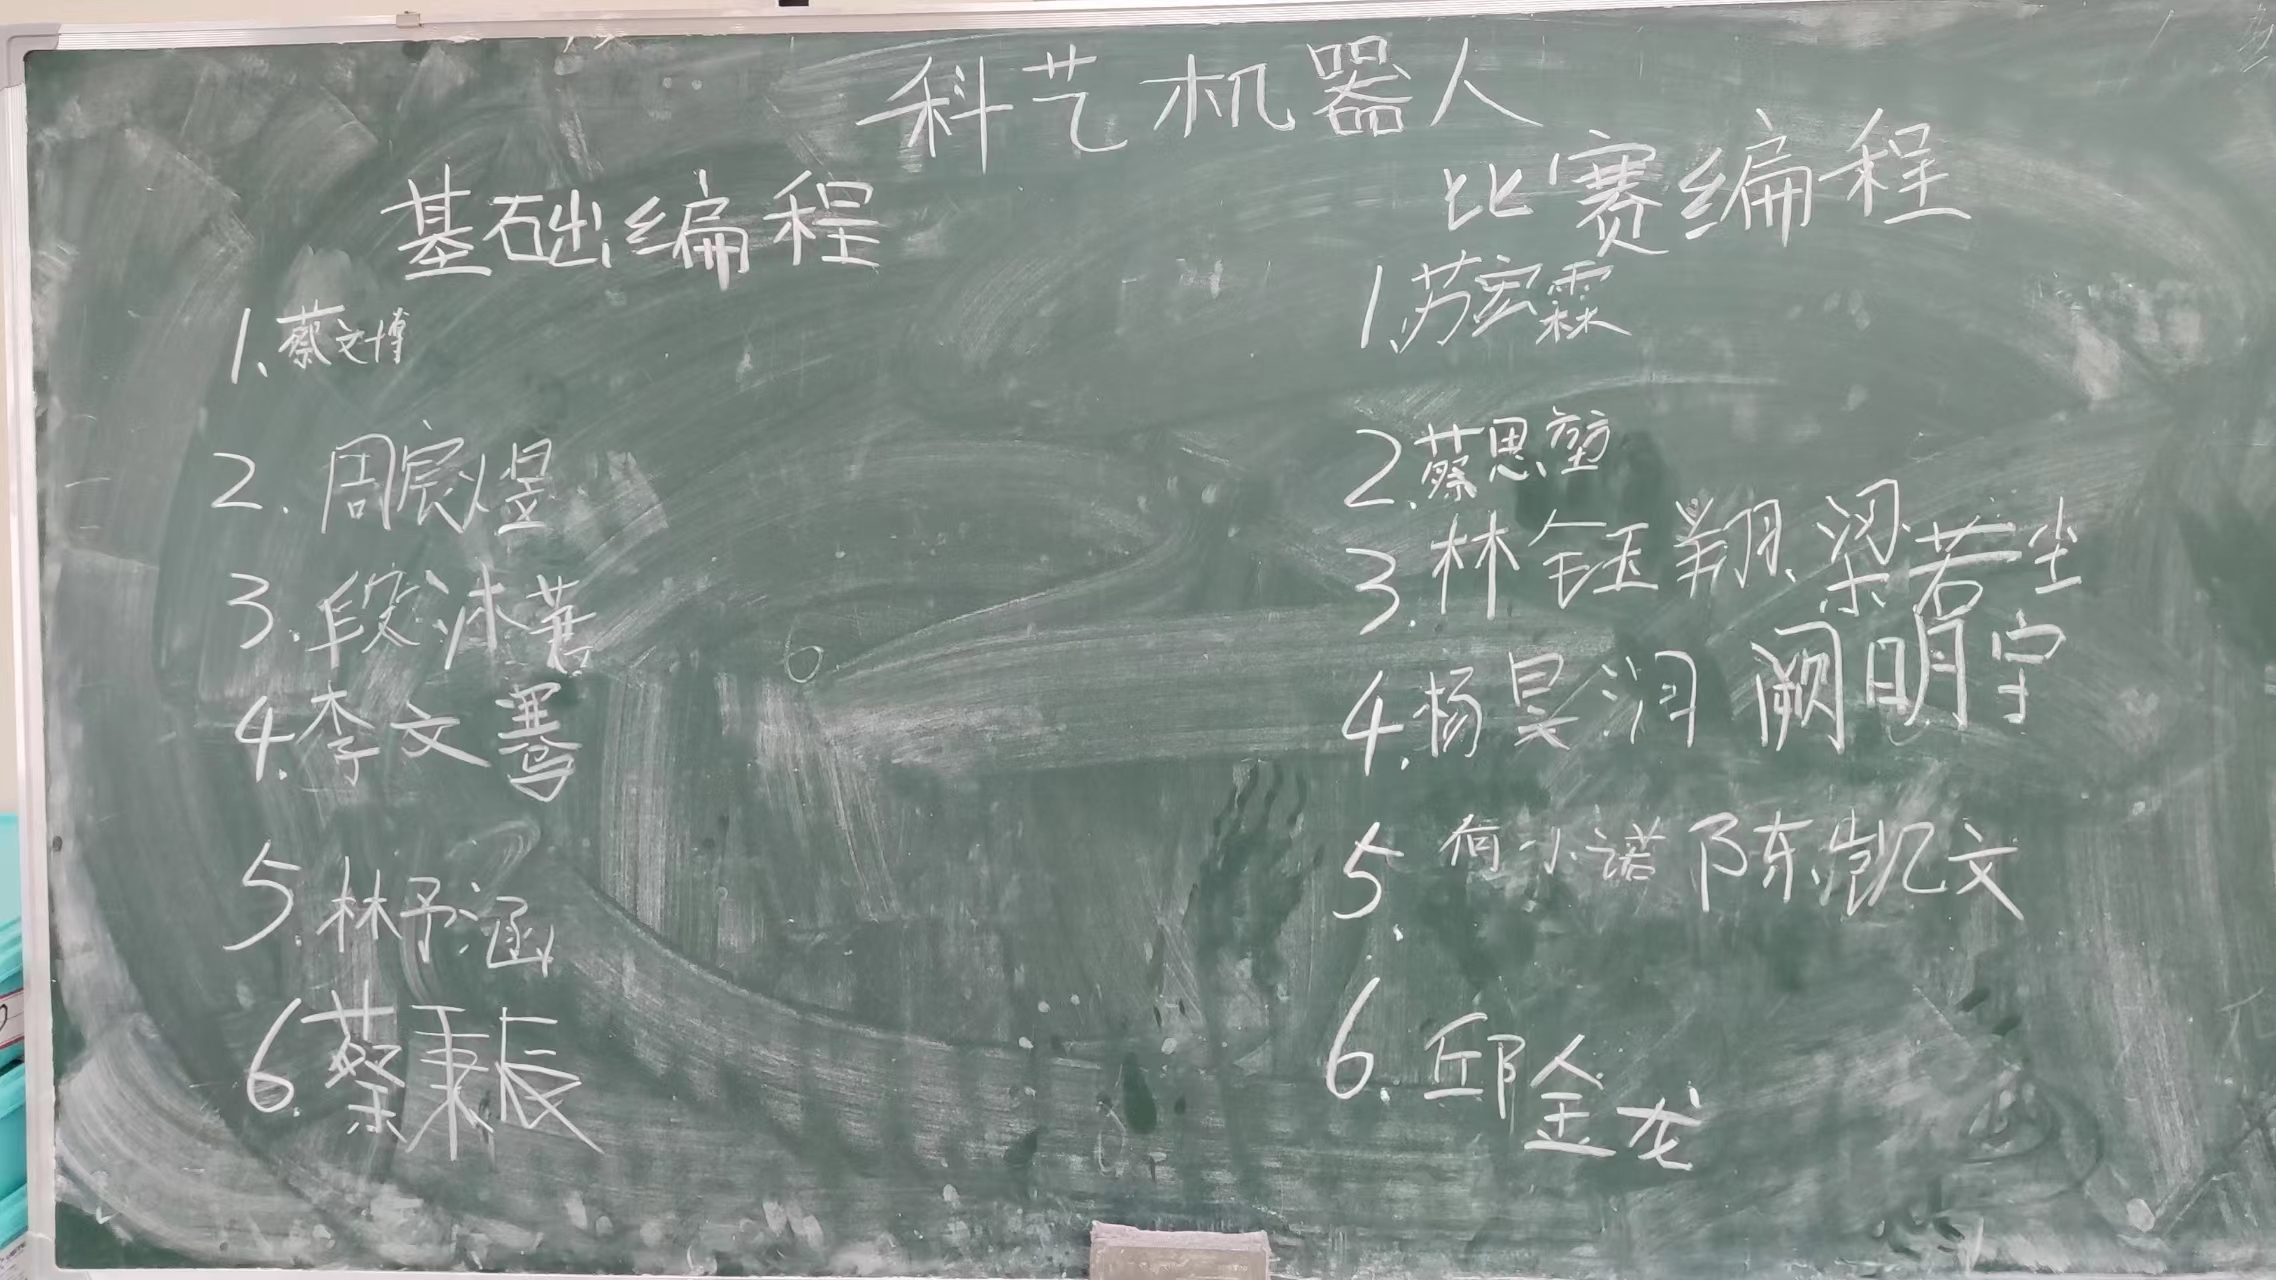 科艺机器人
基础编程
1.蔡文博
2.周宸煜
3.段沐萱
4.李文骞
5.林予涵
6.蔡秉辰
比赛编程
1.苏宏霖
2.蔡思堃
3.林钰翔 梁若尘
4.杨昊润 阙明宇
5.何小诺 陈凯文
6.邱金龙